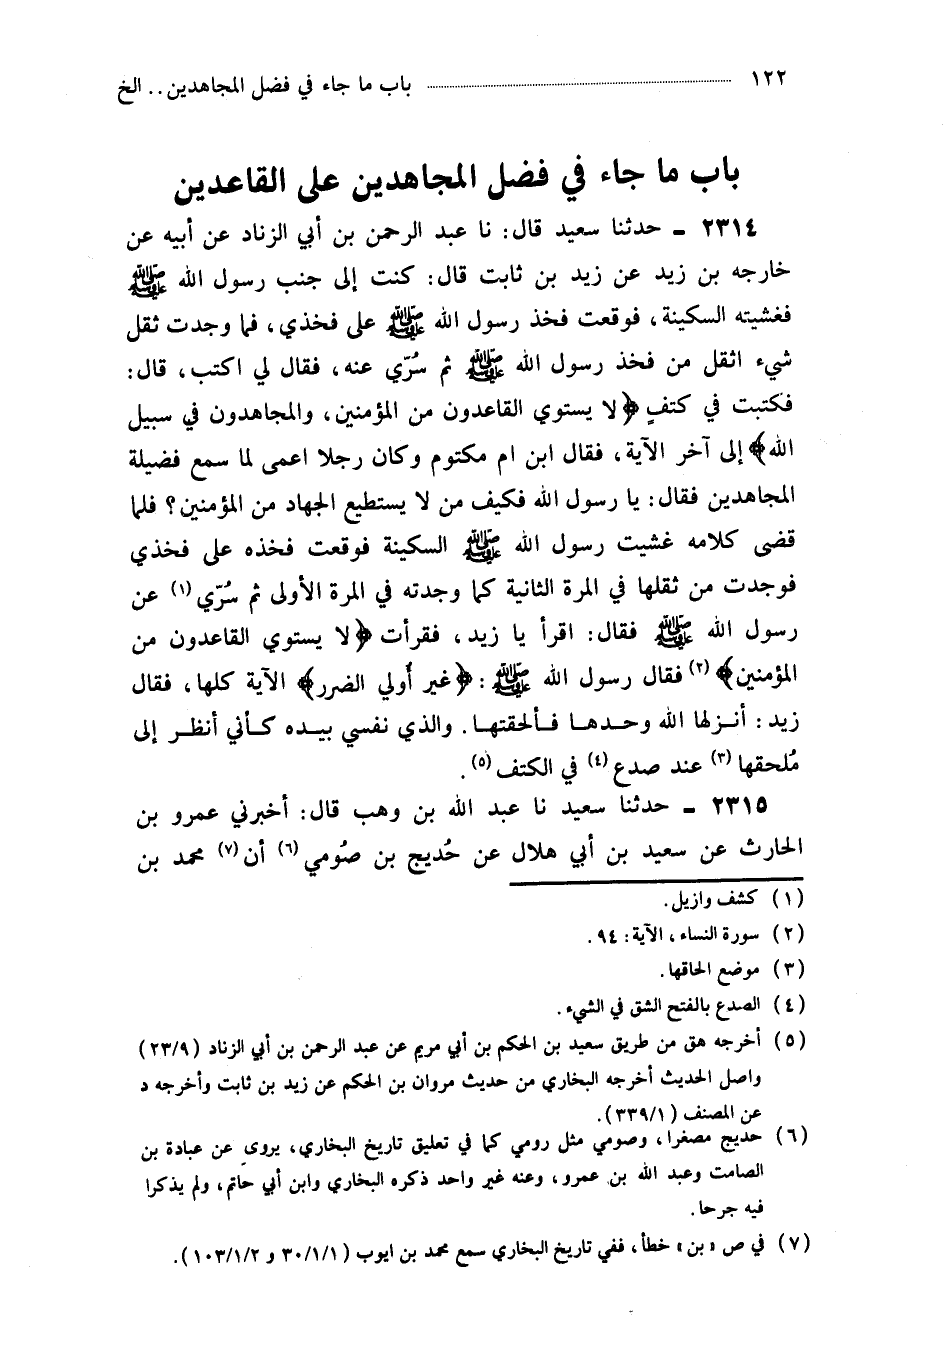 ١٢٢ ........ باب ما جاء في فضل المجاهدين .. الخ
باب ما جاء في فضل المجاهدين على القاعدين
٢٣١٤ ـ حدثنا سعيد قال: نا عبد الرحمن بن أبي الزناد عن أبيه عن
خارجه بن زيد عن زيد بن ثابت قال: كنت إلى جنب رسول الله ﷺ
فغشيته السكينة، فوقعت فخذ رسول الله ﷺ على فخذي، فما وجدت ثقل
شيء اثقل من فخذ رسول الله ﷺ ثم سُرّي عنه، فقال لي اكتب، قال:
فكتبت في كتفٍ ﴿لا يستوي القاعدون من المؤمنين، والمجاهدون في سبيل
الله﴾ إلى آخر الآية، فقال ابن ام مكتوم وكان رجلا اعمى لما سمع فضيلة
المجاهدين فقال: يا رسول الله فكيف من لا يستطيع الجهاد من المؤمنين؟ فلما
قضى كلامه غشيت رسول الله ﷺ السكينة فوقعت فخذه على فخذي
فوجدت من ثقلها في المرة الثانية كما وجدته في المرة الأولى ثم سُرّي (١) عن
رسول الله ﷺ فقال: اقرأ يا زيد، فقرأت ﴿لا يستوي القاعدون من
المؤمنين﴾ (٢) فقال رسول الله ﷺ: ﴿غير أُولي الضرر﴾ الآية كلها، فقال
زيد: أنزلها الله وحدها فألحقتها. والذي نفسي بيده كأني أنظر إلى
مُلحقها (٣) عند صدع (٤) في الكتف (٥).
٢٣١٥ ـ حدثنا سعيد نا عبد الله بن وهب قال: أخبرني عمرو بن
الحارث عن سعيد بن أبي هلال عن حُديج بن صُومي (٦) أن (٧) محمد بن
(١) كشف وازيل.
(٢) سورة النساء، الآية: ٩٤.
(٣) موضع الحاقها.
(٤) الصدع بالفتح الشق في الشيء.
(٥) أخرجه هق من طريق سعيد بن الحكم بن أبي مريم عن عبد الرحمن بن أبي الزناد (٢٣/٩)
واصل الحديث أخرجه البخاري من حديث مروان بن الحكم عن زيد بن ثابت وأخرجه د
عن المصنف (٣٣٩/١).
(٦) حديج مصغرا، وصومي مثل رومي كما في تعليق تاريخ البخاري، يروي عن عبادة بن
الصامت وعبد الله بن عمرو، وعنه غير واحد ذكره البخاري وابن أبي حاتم، ولم يذكرا
فيه جرحا.
(٧) في ص «بن» خطأ، ففي تاريخ البخاري سمع محمد بن ايوب (٣٠/١/١ و ١٠٣/١/٢).